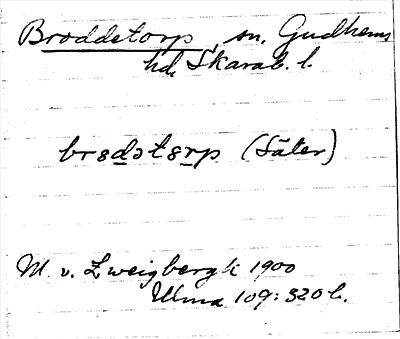 Broddetorp, sn, Gudhems
hd, Skarab. l.
brɞdətɞrp (Säter)
M. v. Zweigbergk 1900
Ulma 109:320 b.